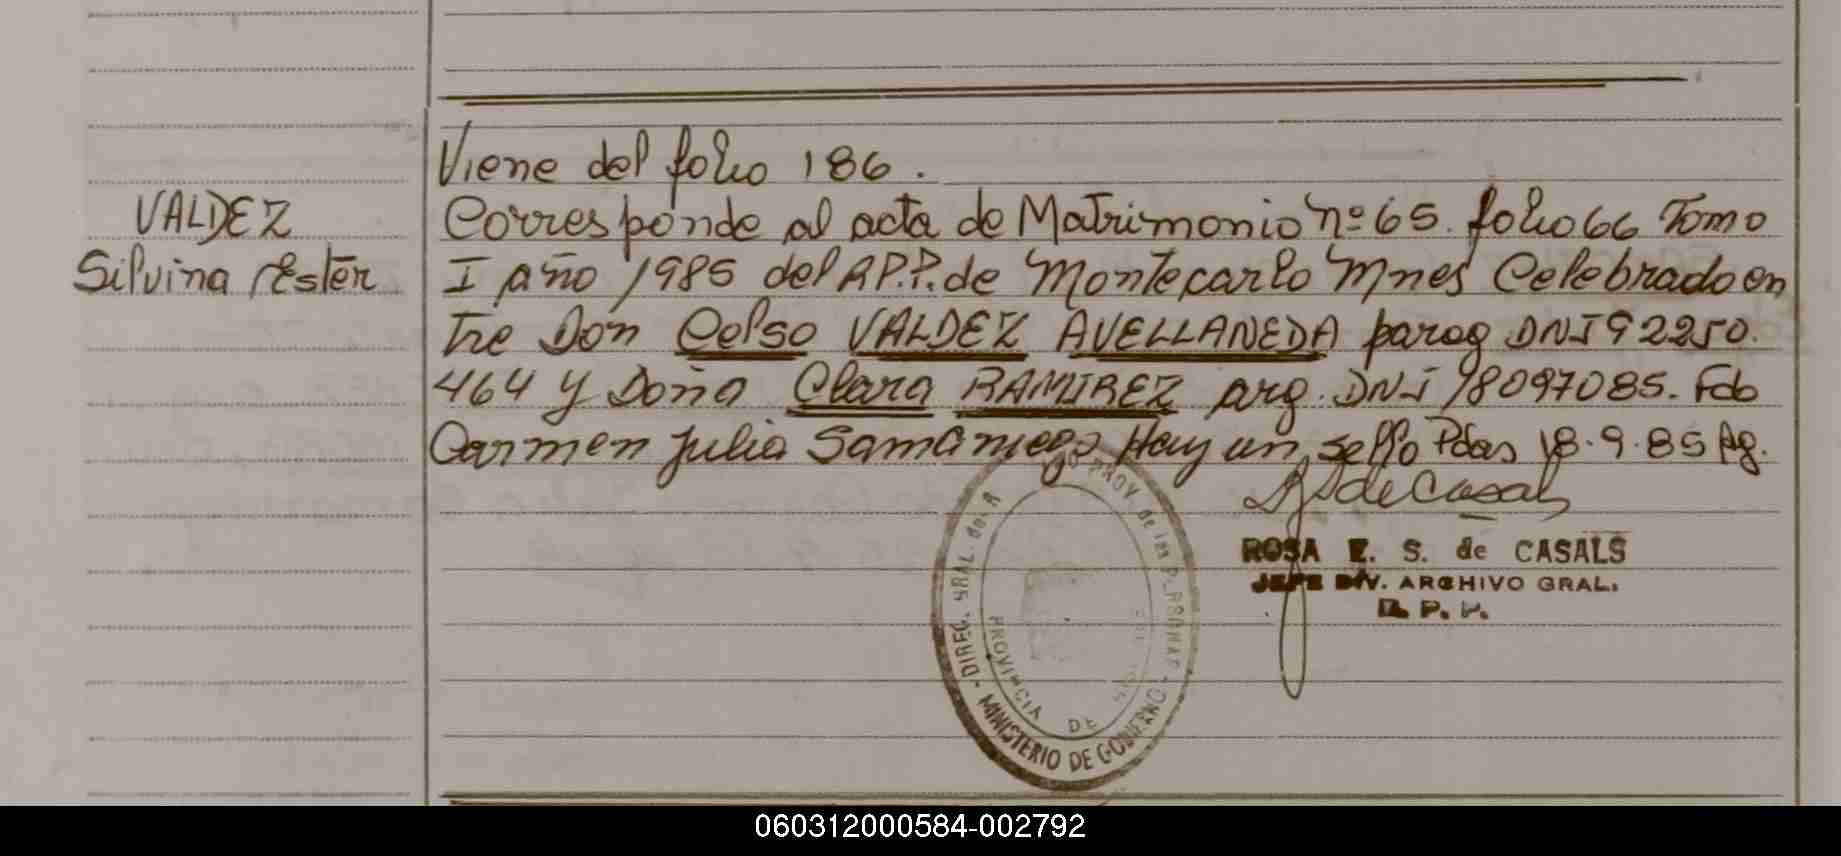 Viene del folio 186.
VALDEZ
Silvina Ester
Corresponde al acta de Matrimonio nº 65. folio 66 Tomo
I año 1985 del R.P.P. de Montecarlo Mnes Celebrado en
tre Don Celso VALDEZ AVELLANEDA parag DNI 92250.
464 y Doña Clara RAMIREZ arg. DNI 18097085. Fdo
Carmen Julia Samaniego Hay un sello Pdas 18.9.85 Ag.
de Casals
ROSA E. S. de CASALS
JEFE DIV. ARCHIVO GRAL.
R. P. P.
DIREC. GRAL. del R PROV. de las PERSONAS - MINISTERIO DE GOBIERNO -
PROVINCIA DE
060312000584-002792